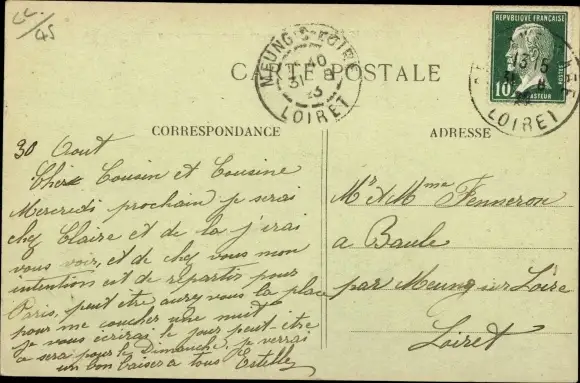 cc/45
MEUNG-S-LOIRE
40
31 8
23
LOIRET
REPUBLIQUE FRANÇAISE
10c
PASTEUR
13 15
31 8
LOIRET
CARTE POSTALE
CORRESPONDANCE
ADRESSE
30 Aout
Cher Cousin et Cousine
Mercredi prochain je serai
chez Claire et de la j'irai
vous voir, et de chez vous mon
intention est de repartir pour
Paris, peut etre aurez vous la place
pour me coucher une nuit
je vous écrirai le jour peut-etre
ce serai pour le Dimanche, je verrai
un bon baiser a tous Estelle
Mr & Mme Fenneron
a Baule
par Meung sur Loire
Loiret